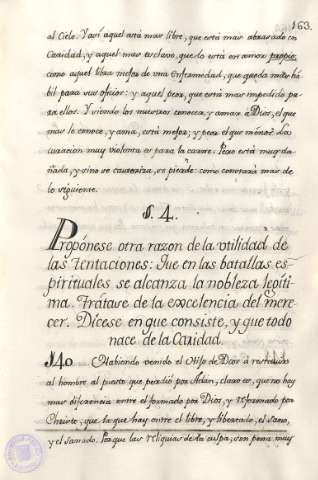 163.
al Cielo. Y así aquel está mas libre, que está mas abrasado en
Caridad, y aquel mas esclavo, que lo está en amor propio;
como aquel libra mejor de una Enfermedad, que queda mas há-
bil para sus oficios: y aquel peor, que está mas impedido pa-
ra ellos. Y siendo los nuestros conocer, y amar a Dios, el que
mas lo conoce, y ama, está mejor; y peor el que menos. La
curacion muy violenta es para la carne. Pero está muy da-
ñada, y sino se cauteriza, se pierde: como constará mas de
lo siguiente.
§. 4.
Propónese otra razon de la vtilidad de
las Tentaciones: Que en las batallas es-
pirituales se alcanza la nobleza legíti-
ma. Trátase de la excelencia del mere-
cer. Dícese en que consiste, y que todo
nace de la Caridad.
140. Habiendo venido el Hijo de Dios á restituir
al hombre al puesto que perdió por Adan, claro es, que no hay
mas diferencia entre el formado por Dios, y reformado por
Christo, que la que hay entre el libre, y libertado, el sano,
y el sanado. Porque las reliquias de la culpa, son pena muy